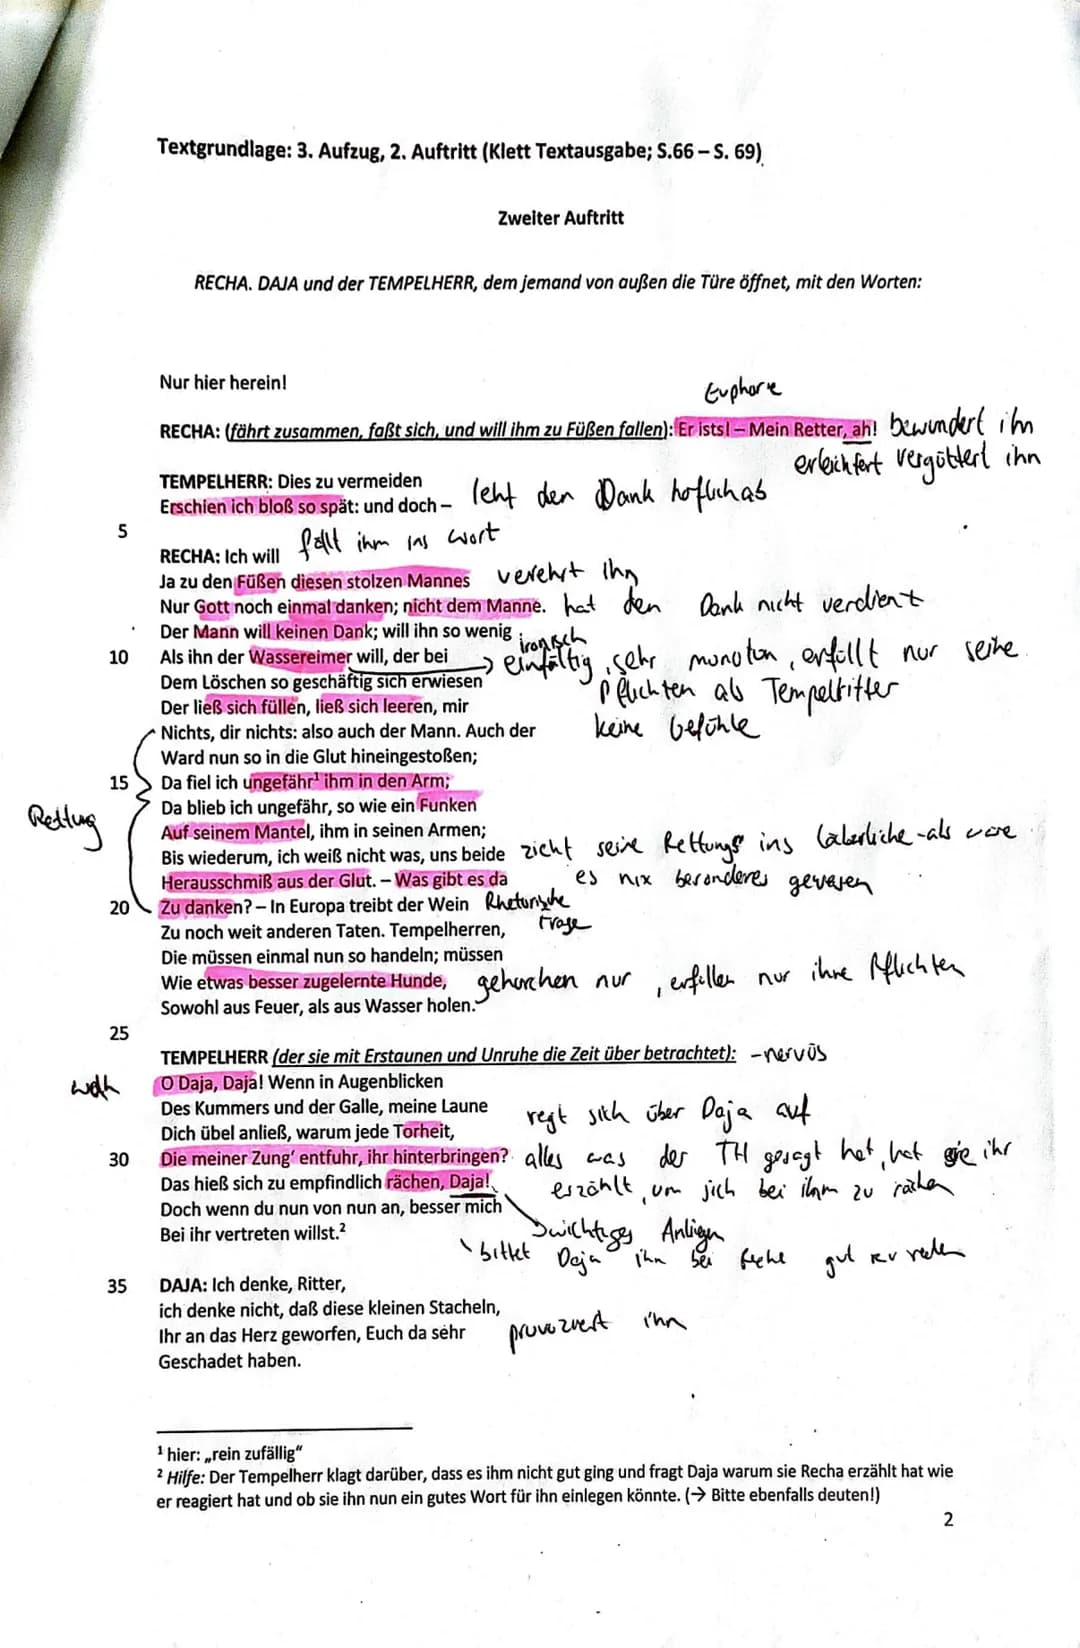 Textgrundlage: 3. Aufzug, 2. Auftritt (Klett Textausgabe; S.66 – S. 69)
Zweiter Auftritt
RECHA. DAJA und der TEMPELHERR, dem jemand von außen die Türe öffnet, mit den Worten:
Nur hier herein!
Euphorie
RECHA: (fährt zusammen, faßt sich, und will ihm zu Füßen fallen): Er ists! – Mein Retter, ah! bewundert ihn
erleichtert vergöttert ihn
TEMPELHERR: Dies zu vermeiden
Erschien ich bloß so spät: und doch – leht den Dank höflich ab
5
RECHA: Ich will fällt ihm ins Wort
Ja zu den Füßen diesen stolzen Mannes verehrt ihn
Nur Gott noch einmal danken; nicht dem Manne. hat den Dank nicht verdient
Der Mann will keinen Dank; will ihn so wenig ironisch
10 Als ihn der Wassereimer will, der bei einfältig, sehr monoton, erfüllt nur seine
Dem Löschen so geschäftig sich erwiesen Pflichten als Tempelritter
Der ließ sich füllen, ließ sich leeren, mir keine Gefühle
Nichts, dir nichts: also auch der Mann. Auch der
Ward nun so in die Glut hineingestoßen;
15 Da fiel ich ungefähr¹ ihm in den Arm;
Rettung
Da blieb ich ungefähr, so wie ein Funken
Auf seinem Mantel, ihm in seinen Armen;
Bis wiederum, ich weiß nicht was, uns beide zieht seine Rettung ins lächerliche - als wäre
Herausschmiß aus der Glut. – Was gibt es da es nix besonderes gewesen
20 Zu danken? – In Europa treibt der Wein Rhetorische
Zu noch weit anderen Taten. Tempelherren, Frage
Die müssen einmal nun so handeln; müssen
Wie etwas besser zugelernte Hunde, gehorchen nur, erfüllen nur ihre Pflichten
Sowohl aus Feuer, als aus Wasser holen.
25
TEMPELHERR (der sie mit Erstaunen und Unruhe die Zeit über betrachtet): - nervös
wdh O Daja, Daja! Wenn in Augenblicken
Des Kummers und der Galle, meine Laune regt sich über Daja auf
Dich übel anließ, warum jede Torheit,
30 Die meiner Zung' entfuhr, ihr hinterbringen? alles was der TH gesagt hat, hat sie ihr
Das hieß sich zu empfindlich rächen, Daja! erzählt, um sich bei ihm zu rächen
Doch wenn du nun von nun an, besser mich wichtiges Anligen
Bei ihr vertreten willst.² bittet Daja ihn bei gut zu reden
35 DAJA: Ich denke, Ritter,
ich denke nicht, daß diese kleinen Stacheln,
Ihr an das Herz geworfen, Euch da sehr provoziert ihn
Geschadet haben.
¹ hier: „rein zufällig“
² Hilfe: Der Tempelherr klagt darüber, dass es ihm nicht gut ging und fragt Daja warum sie Recha erzählt hat wie
er reagiert hat und ob sie ihn nun ein gutes Wort für ihn einlegen könnte. (→ Bitte ebenfalls deuten!)
2